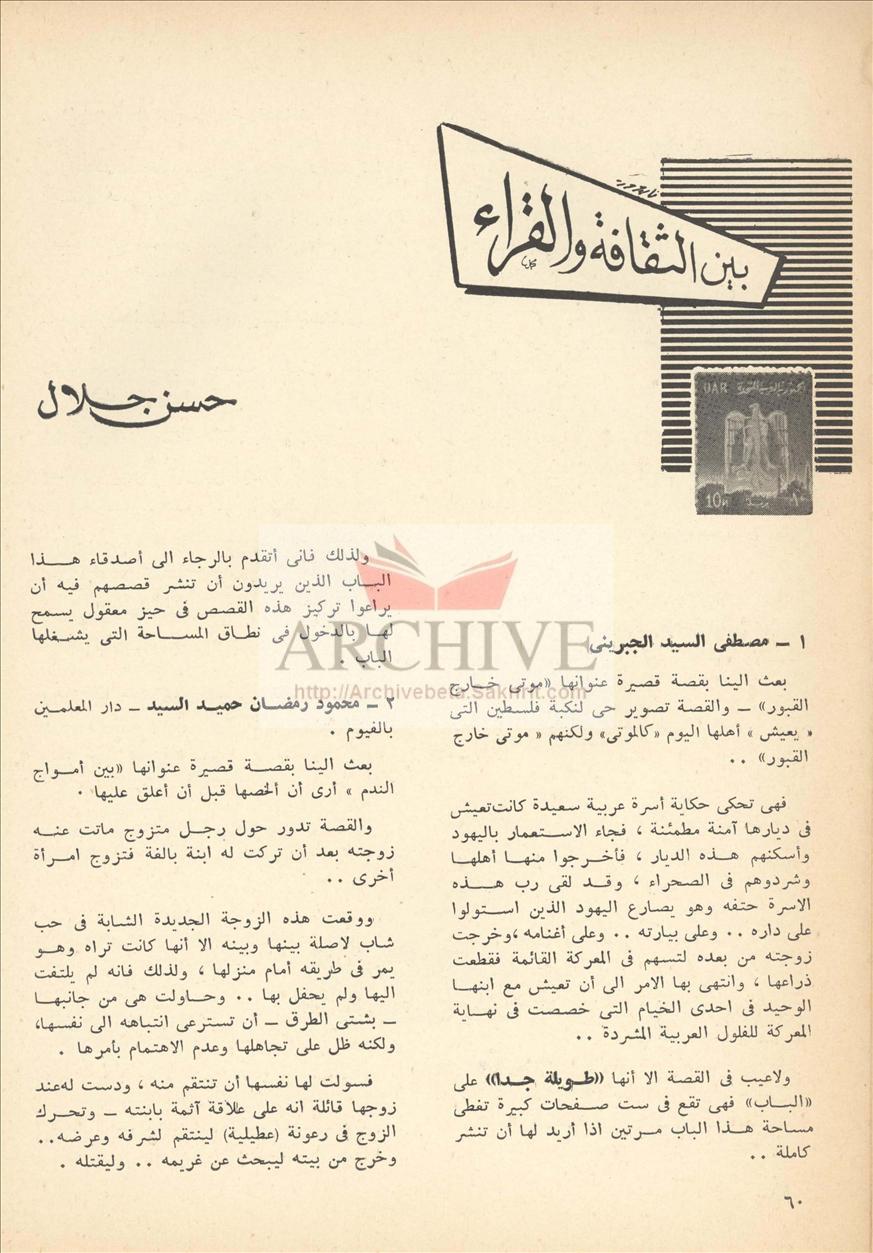 بين الثقافة والقراء
UAR
10M
حسن جلال
١ ـ مصطفى السيد الجبرينى
بعث الينا بقصة قصيرة عنوانها «موتى خـارج
القبور» ـ والقصة تصوير حى لنكبة فلسطين التى
« يعيش » أهلها اليوم «كالموتى» ولكنهم « موتى خارج
القبور» ..
فهى تحكى حكاية أسرة عربية سعيدة كانت تعيش
فى ديارها آمنة مطمئنة ، فجاء الاستعمار باليهود
وأسكنهم هـذه الديار ، فأخـرجوا منهـا أهلهـا
وشردوهم فى الصحراء ، وقـد لقى رب هـذه
الاسرة حتفه وهو يصارع اليهود الذين استولوا
على داره .. وعلى بيارته .. وعلى أغنامه ، وخرجت
زوجته من بعده لتسهم فى المعركة القائمة فقطعت
ذراعها ، وانتهى بها الامر الى أن تعيش مع ابنهـا
الوحيد فى احدى الخيام التى خصصت فى نهـاية
المعركة للفلول العربية المشردة ..
ولاعيب فى القصة الا أنها ((طـويلة جـدا)) على
«البـاب» فهى تقع فى ست صـفحات كبيرة تغطى
مساحة هـذا الباب مـرتين اذا أريد لها أن تنشر
كاملة ..
ولذلك فانى أتقدم بالرجاء الى أصدقاء هـذا
البـاب الذين يريدون أن تنشر قصصهم فيه أن
يراعوا تركيز هذه القصص فى حيز معقول يسمح
لهـا بالدخول فى نطاق المسـاحة التى يشـغلها
الباب .
٢ ـ محمود رمضـان حميـد السيـد ـ دار المعلمـين
بالفيوم .
بعث الينا بقصـة قصيرة عنوانها «بين أمـواج
الندم » أرى أن ألخصها قبل أن أعلق عليها .
والقصة تدور حول رجـل متزوج ماتت عنـه
زوجته بعد أن تركت له ابنة بالغة فتزوج امـرأة
أخرى ..
ووقعت هذه الزوجة الجديدة الشابة فى حب
شاب لاصلة بينها وبينه الا أنها كانت تراه وهـو
يمر فى طريقه أمام منزلها ، ولذلك فانه لم يلتفت
اليها ولم يحفل بها .. وحـاولت هى من جانبهـا
ـ بشتى الطرق ـ أن تسترعى انتباهه الى نفسها،
ولكنه ظل على تجاهلها وعدم الاهتمام بأمرها .
فسولت لها نفسها أن تنتقم منه ، ودست له عند
زوجها قائلة انه على علاقة آثمة بابنته ـ وتحـرك
الزوج فى رعونة (عطيلية) لينتقم لشرفه وعرضه..
وخرج من بيته ليبحث عن غريمه .. وليقتله .
٦٠
ARCHIVE
http://Archivebeta.Sakhrit.com